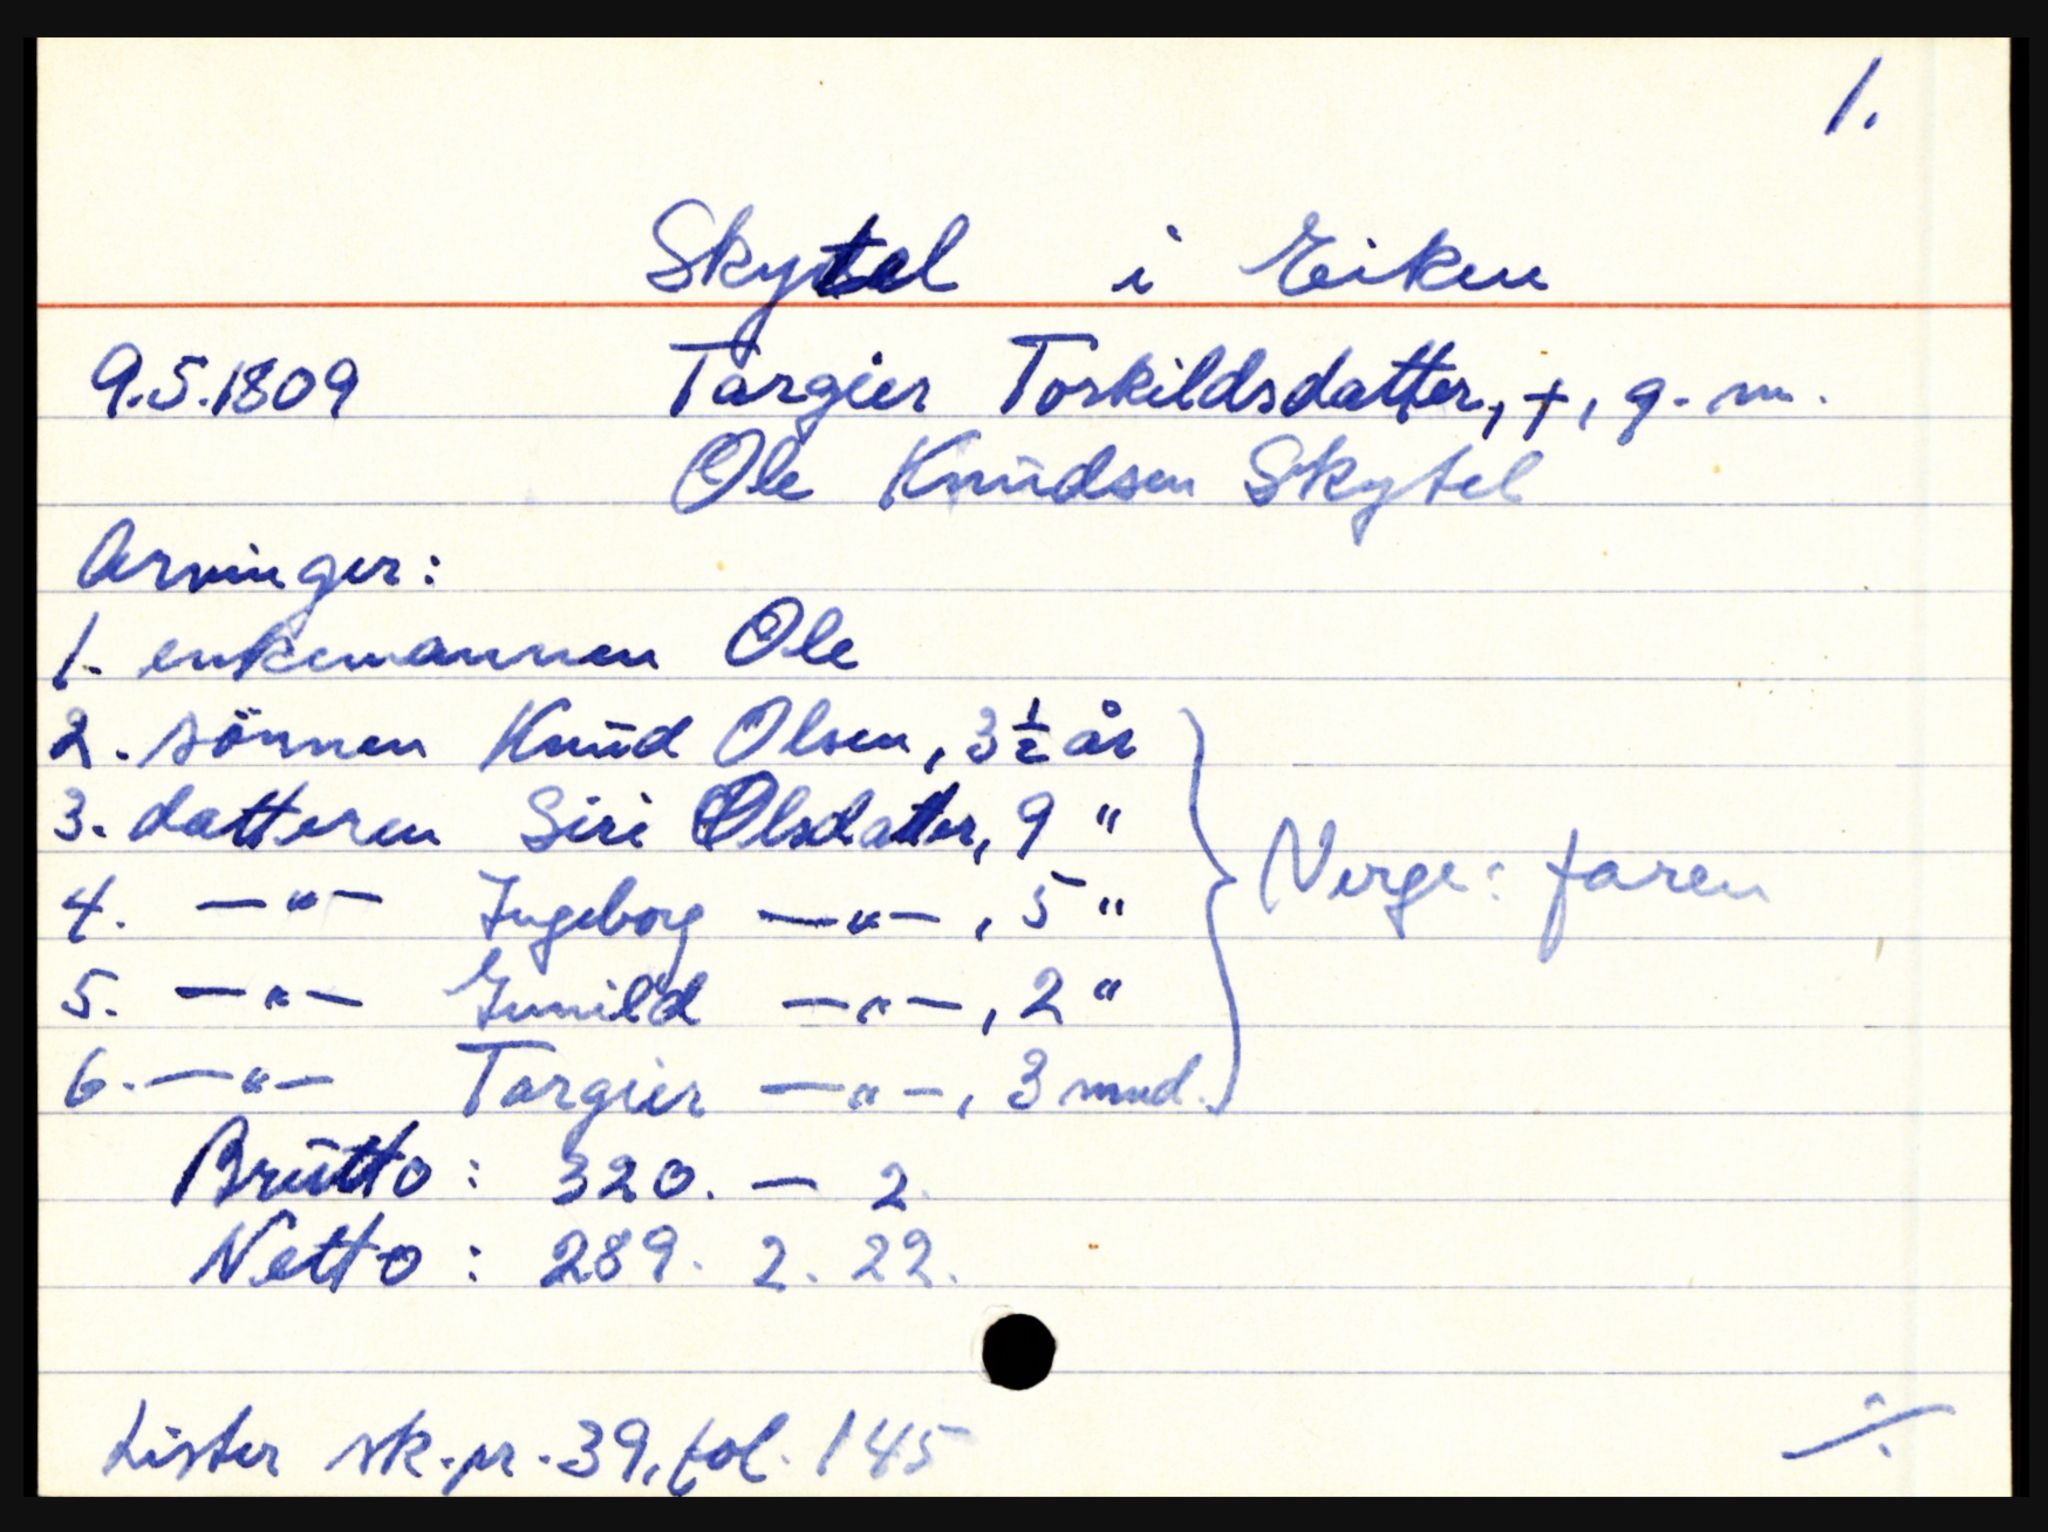 1.
Skytel i Eiken
9.5.1809 Targier Torkildsdatter, +, g. m.
Ole Knudsen Skytel
Arvinger:
1. enkemannen Ole
2. sönnen Knud Olsen, 3 1/2 år
3. datteren Siri Olsdatter, 9 "
Verge: faren
4. —"— Ingeborg —"—, 5 "
5. —"— Gunild —"—, 2 "
6. —"— Targier —"—, 3 mnd.
Brutto: 320. — 2.
Netto: 289. 2. 22.
Lister sk.pr. 39, fol. 145